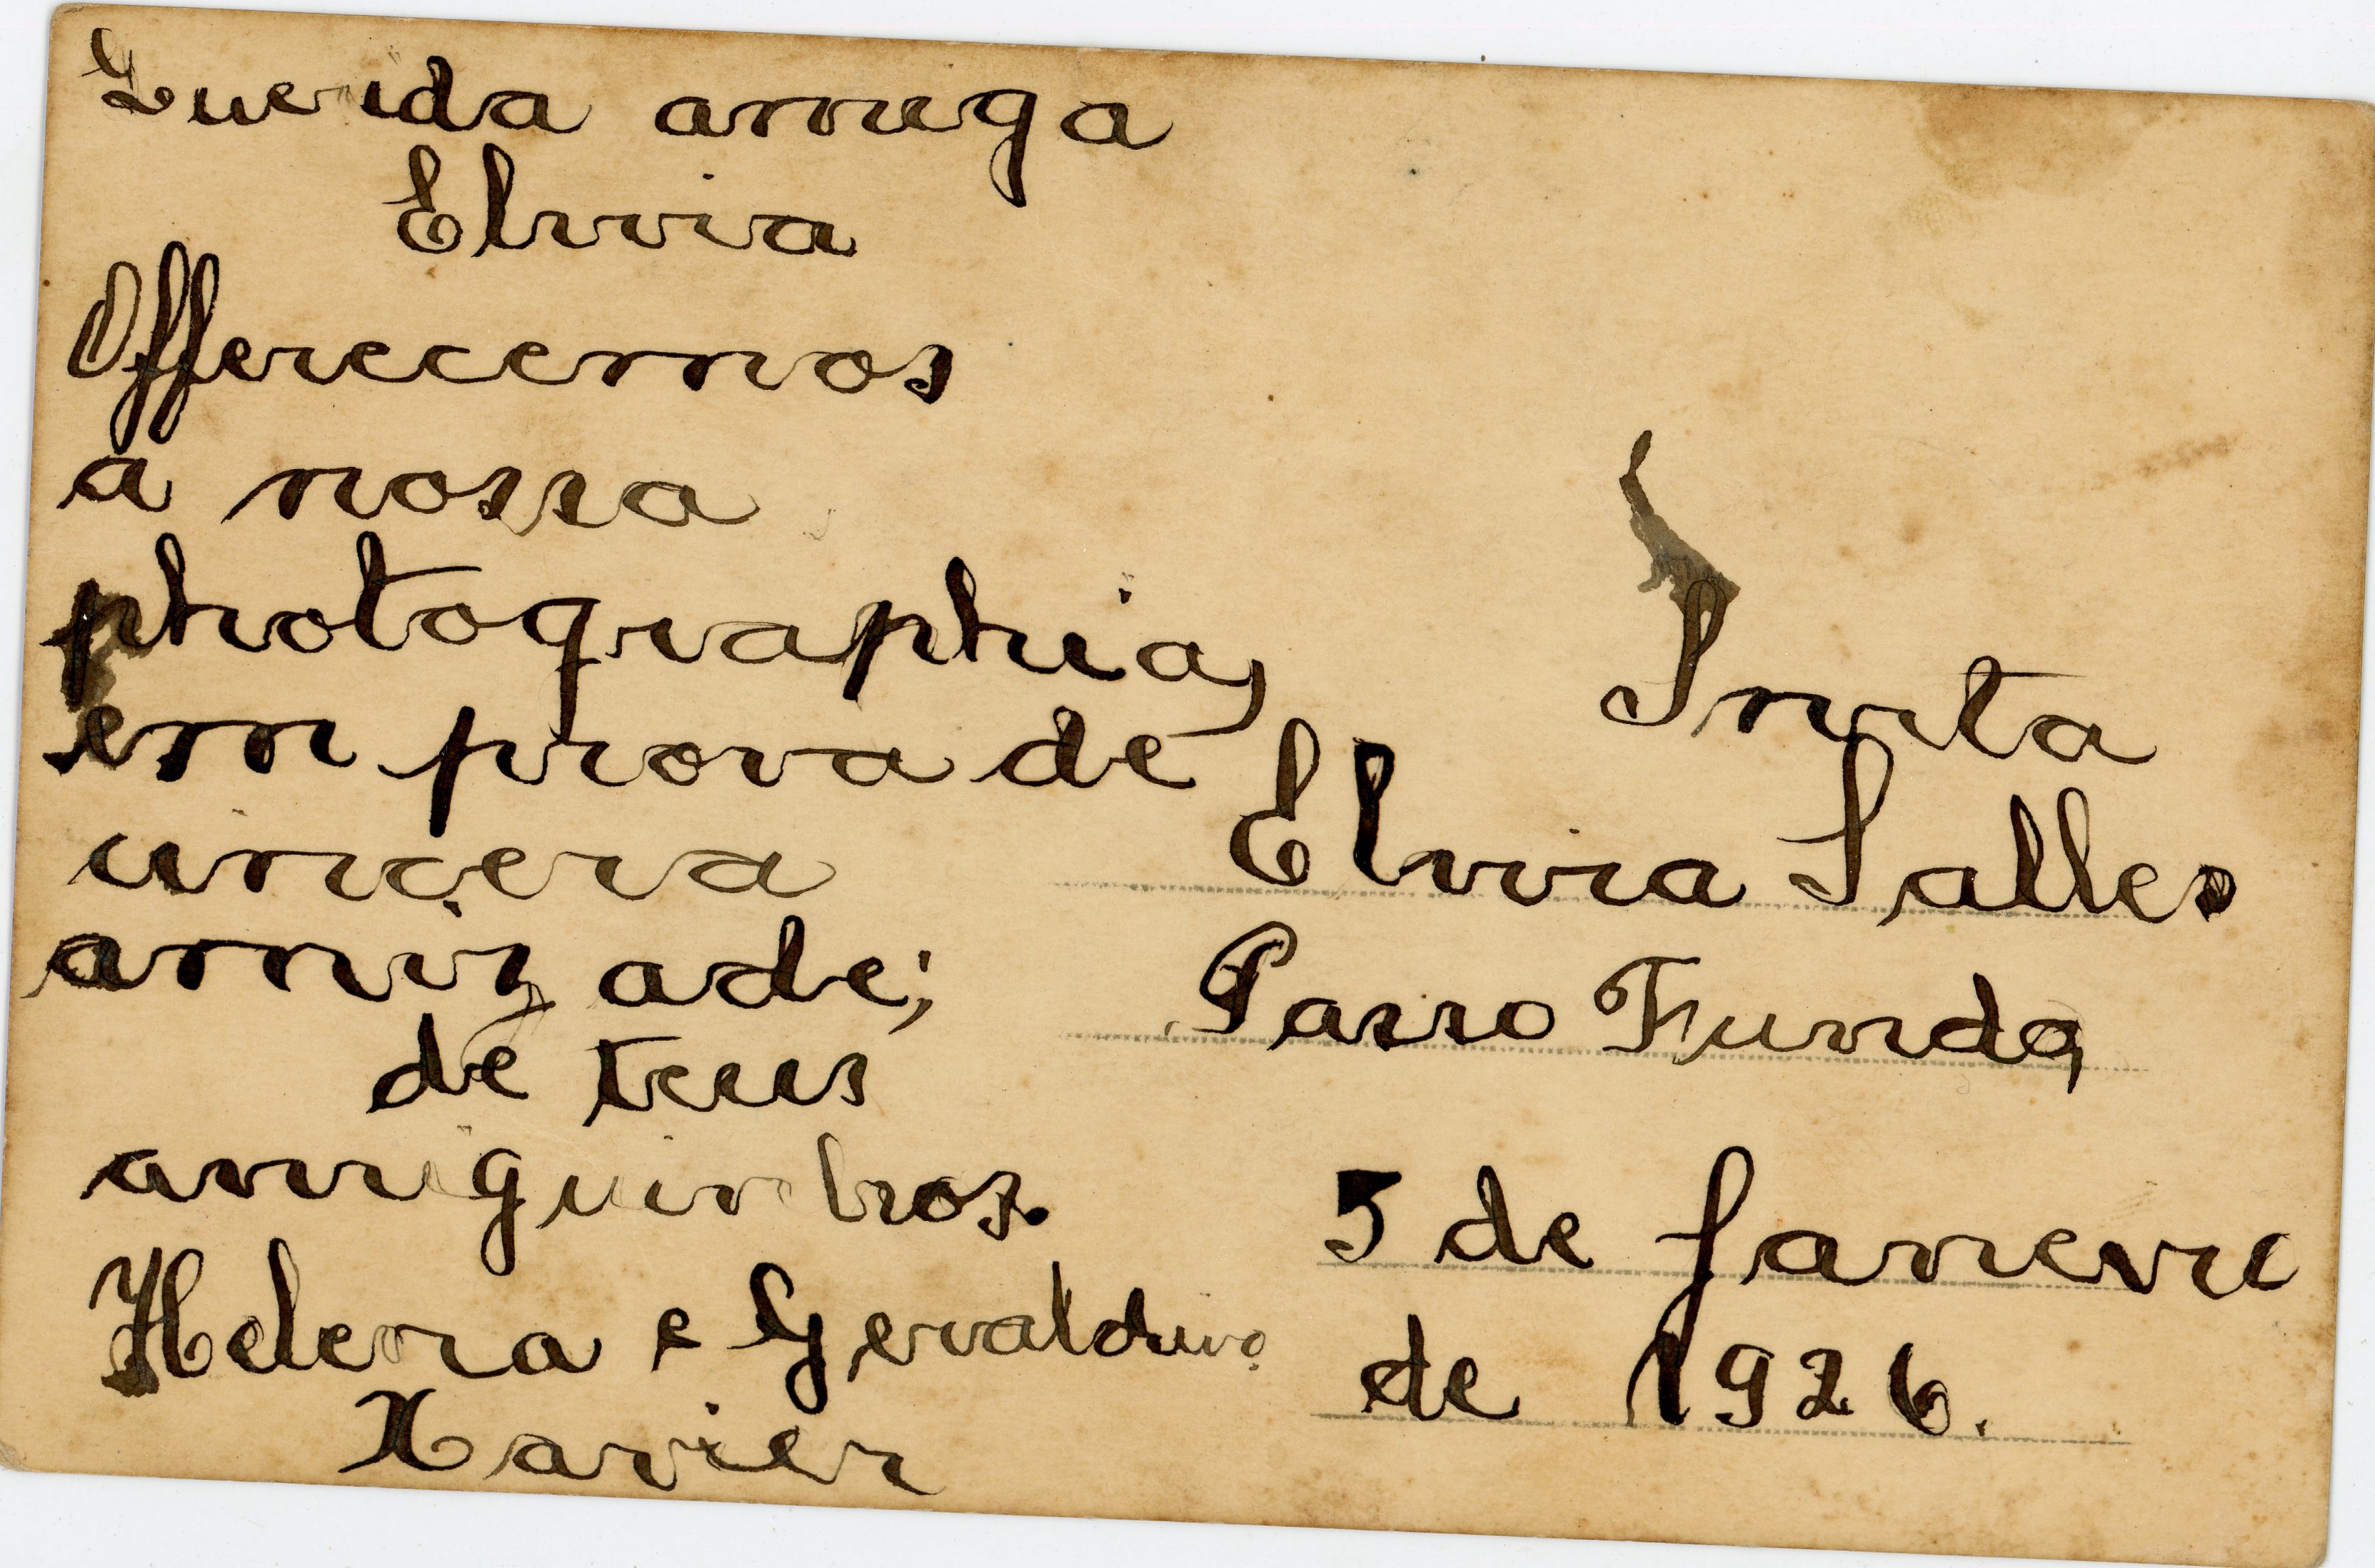 Querida amiga
Elvira
Offerecemos
a nossa
photographia,
em prova de
sincera
amizade;
de teus
amiguinhos.
Helena e Geraldino
Xavier
Snrta
Elvira Salles
Passo Fundo,
5 de Janeiro
de 1926.